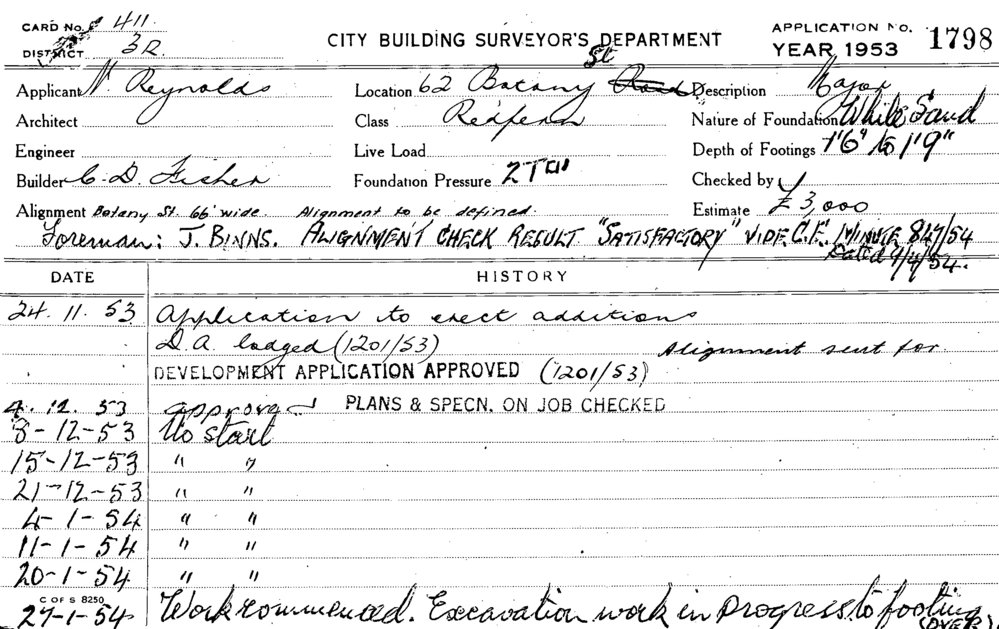 CARD No. 411 CITY BUILDING SURVEYOR'S DEPARTMENT APPLICATION No. 1798
DISTRICT 3R YEAR 1953
Applicant N. Reynolds Location 62 Botany St Road Description Major
Architect Class Redfern Nature of Foundation White Sand
Engineer Live Load Depth of Footings 1'6" to 1'9"
Builder C. D. Fisher Foundation Pressure 2T Checked by
Alignment Botany St. 66' wide. Alignment to be defined. Estimate £3,000
Foreman: J. BINNS. ALIGNMENT CHECK RESULT "SATISFACTORY" VIDE C.E. MINUTE 817/54
Dated 9/4/54.
DATE HISTORY
24.11.53 Application to erect additions
D.A. lodged (1201/53) Alignment sent for
DEVELOPMENT APPLICATION APPROVED (1201/53)
4.12.53 approved PLANS & SPECN. ON JOB CHECKED
8-12-53 No start
15-12-53 " "
21-12-53 " "
4-1-54 " "
11-1-54 " "
20-1-54 " "
C OF S 8250
27-1-54 Work commenced. Excavation work in progress to footing
(OVER)